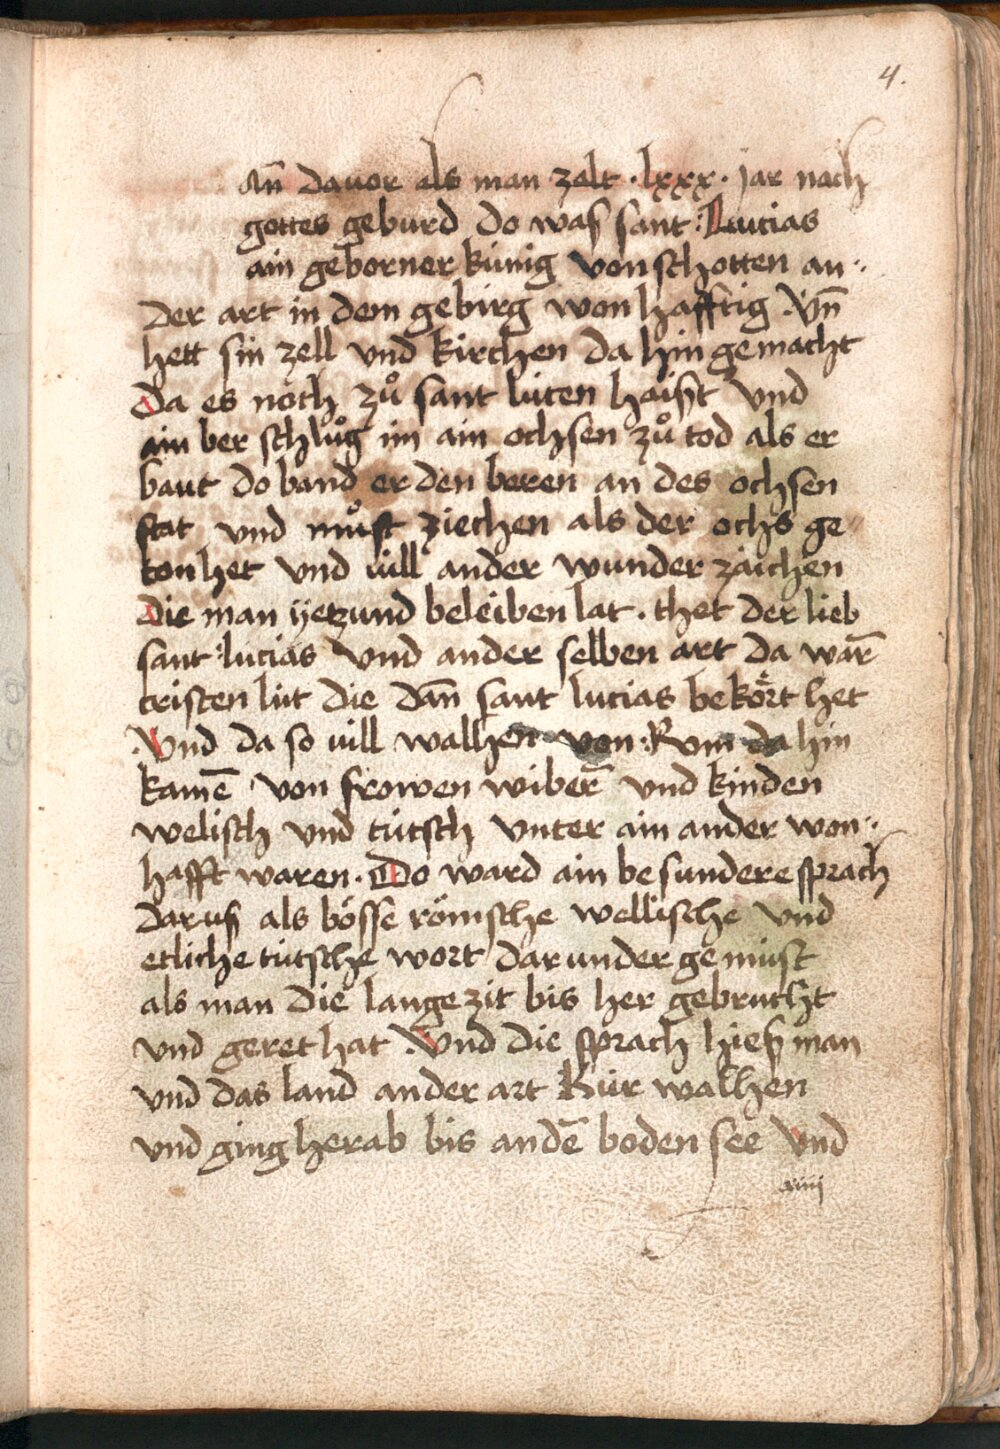 4.
An̄ dauor als man zalt · lxxx · jar nach
gottes geburd Do was sant : Lucias
ain geborner künig von schotten an ·:
der art in dem gebirg won hafftig · Vn̄
hett sin zell vnd kirchen da hin gemacht
Da es noch zů sant lucen haist vnd
ain ber schlůg im ain ochsen zů tod als er
baut do band er den beren an des ochsen
stat vnd můst ziechen als der ochs ge=
ton het vnd uill ander wunder zaichen
Die man yetzund beleiben lat · thet der lieb
sant : lucias vnd ander selben art da war̄
cristen lüt die dan̄ sant lucias bekört het
· Vnd da so uill walhen von : Rom da hin
kamē von frowen wiber̄ vnd kinden
welisch vnd tütsch vnter ain ander won ·:
hafft waren · Do ward ain besundere sprach
darus als bösse römsche wellische vnd
etliche tütsche wort darunder gemüst
als man die lange zit bis her gebrucht
vnd geret hat · Vnd die sprach hies man
vnd das land ander art kur walhen
vnd ging herab bis andē boden see Vnd
aiiij